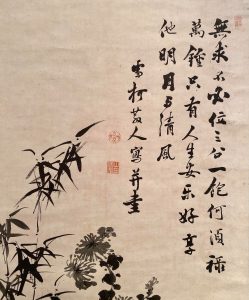 無求不必位三公一飽何須祿
萬鍾只有人生安樂好享
他明月與清風
人寫并畫